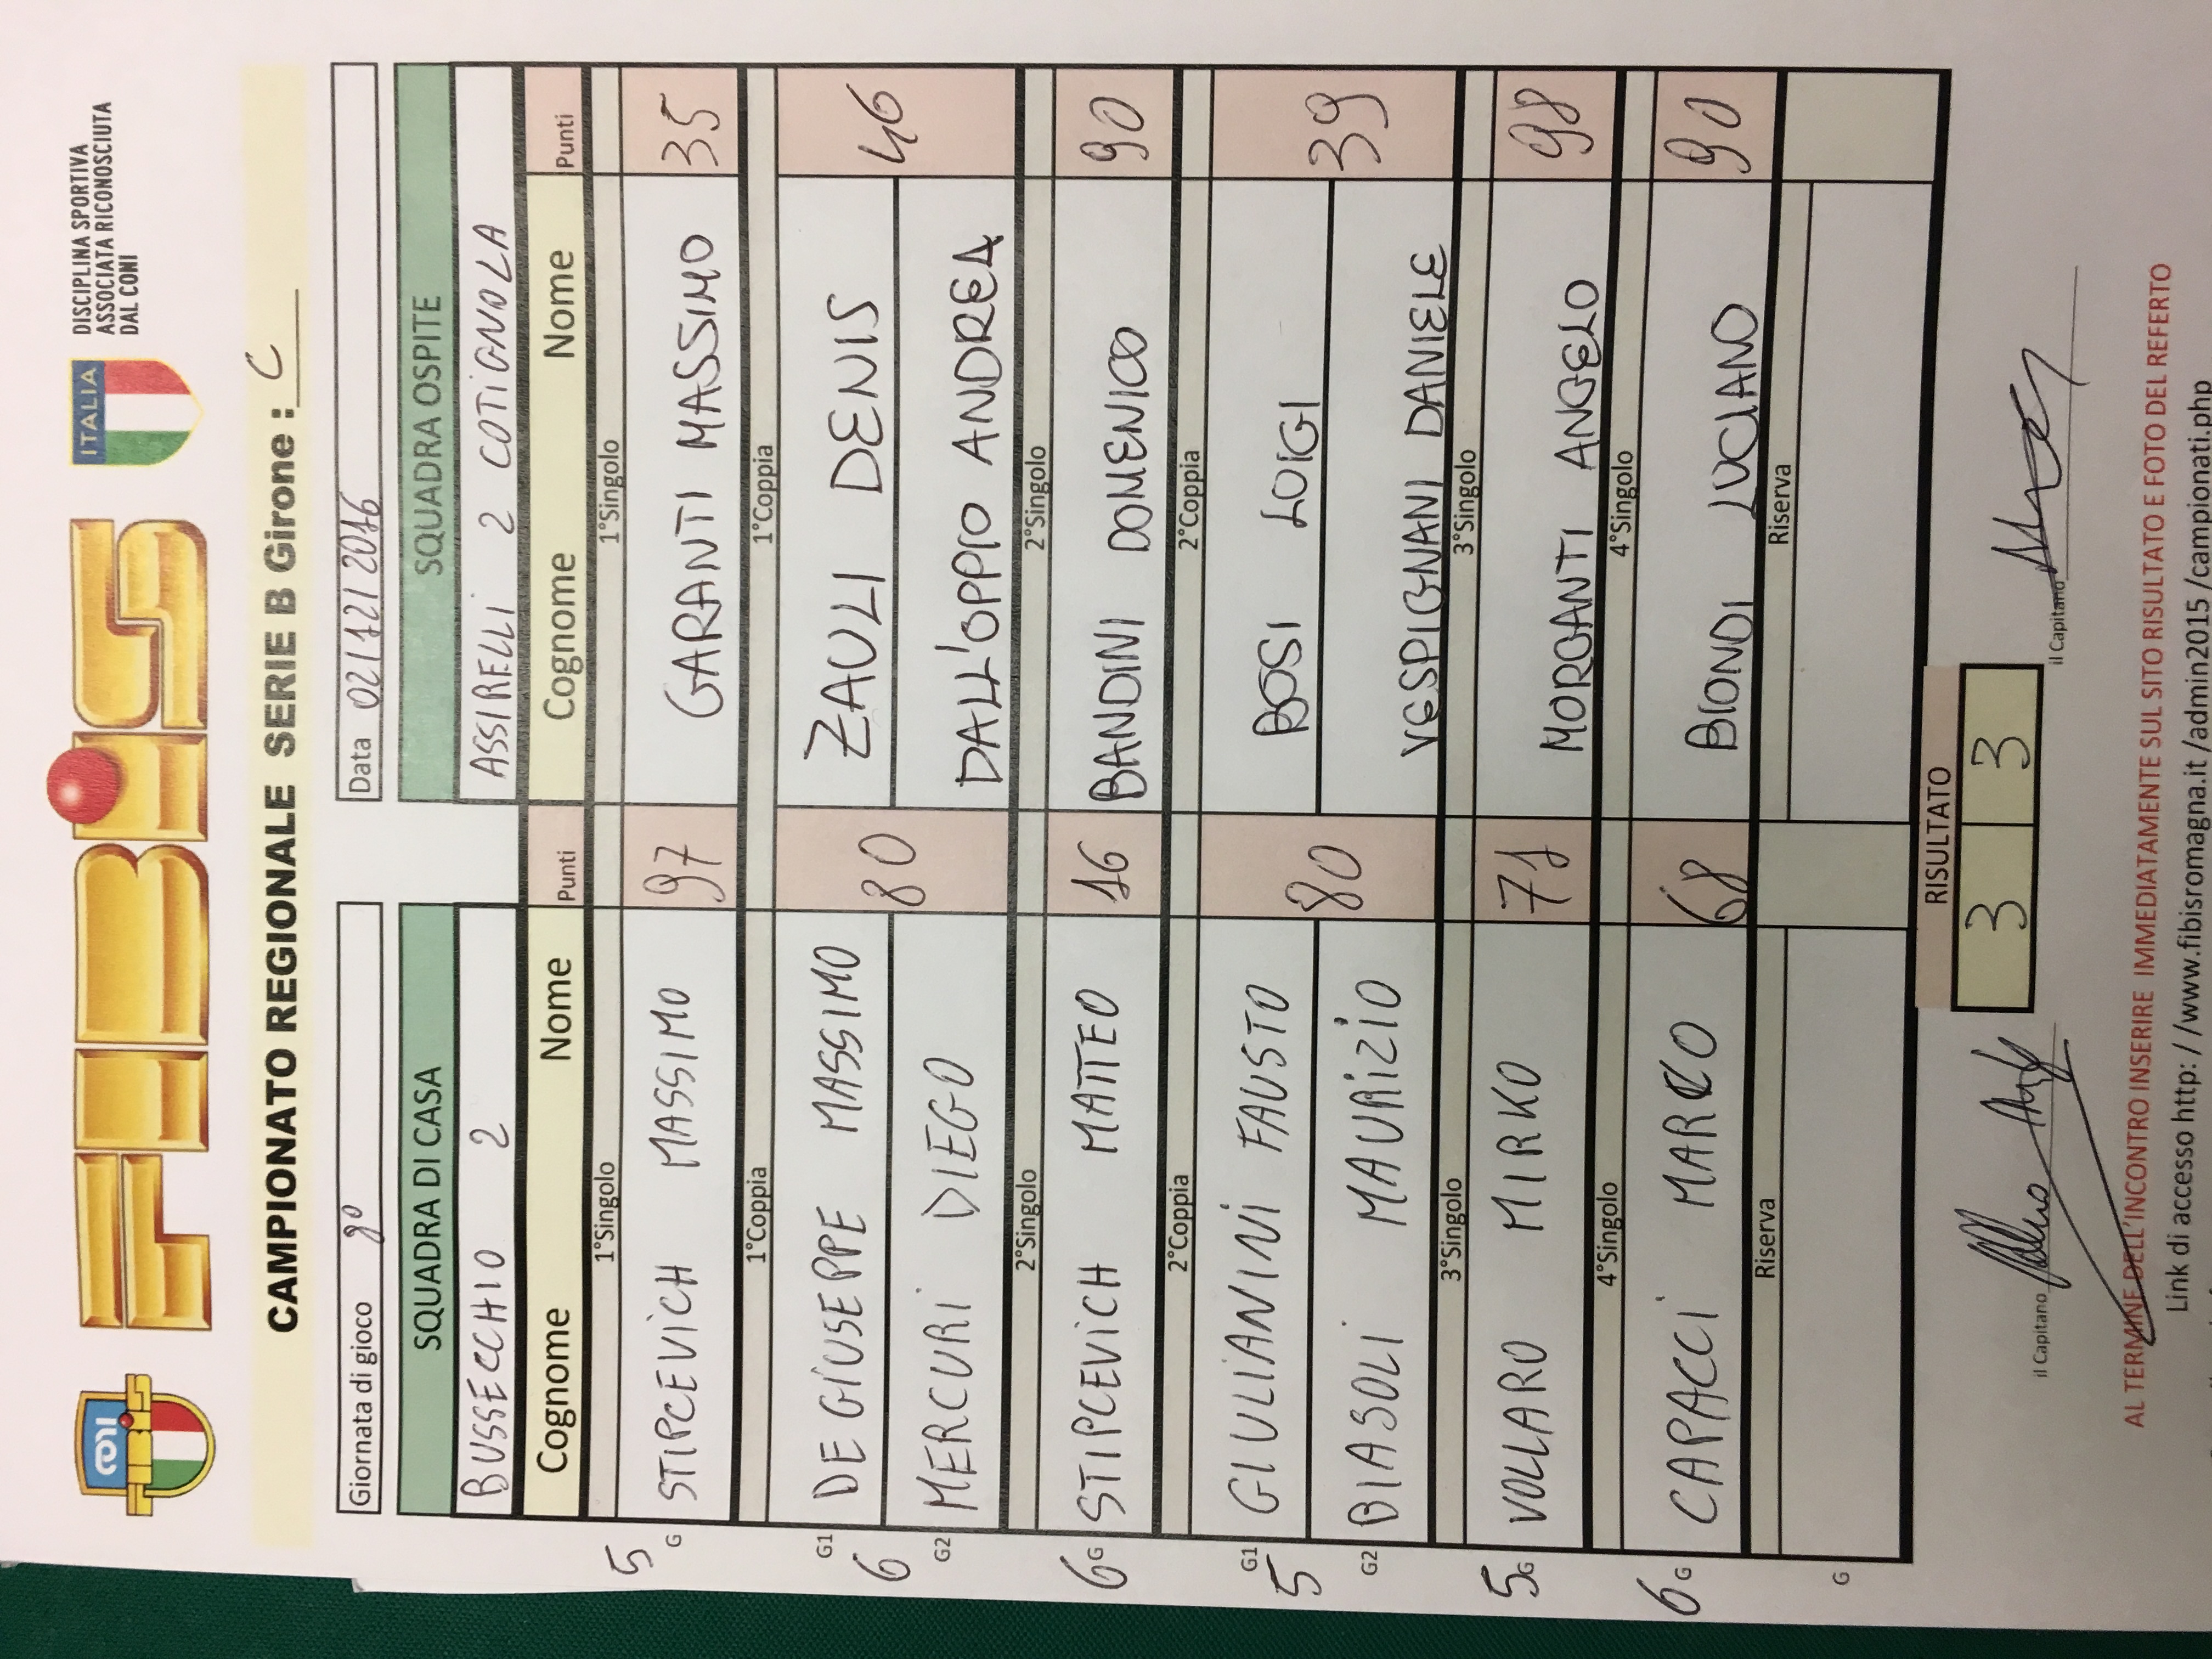 FIBiS
ITALIA
DISCIPLINA SPORTIVA
ASSOCIATA RICONOSCIUTA
DAL CONI
CAMPIONATO REGIONALE SERIE B Girone : C
Giornata di gioco 9° Data 02/12/2016
SQUADRA DI CASA SQUADRA OSPITE
BUSSECCHIO 2 ASSIRELLI 2 COTIGNOLA
Cognome Nome Punti Cognome Nome Punti
1°Singolo 1°Singolo
5 G STIPCEVICH MASSIMO 97 GARANTI MASSIMO 35
1°Coppia 1°Coppia
G1 DE GIUSEPPE MASSIMO ZAULI DENIS
6 80 46
G2 MERCURI DIEGO DALL'OPPIO ANDREA
2°Singolo 2°Singolo
6 G STIPCEVICH MATTEO 16 BANDINI DOMENICO 90
2°Coppia 2°Coppia
G1 GIULIANINI FAUSTO BOSI LUIGI
5 80 39
G2 BIASOLI MAURIZIO VESPIGNANI DANIELE
3°Singolo 3°Singolo
5 G VOLLARO MIRKO 71 MORGANTI ANGELO 98
4°Singolo 4°Singolo
6 G CAPACCI MARCO 68 BIONDI LUCIANO 90
Riserva Riserva
G
RISULTATO
3 3
il Capitano il Capitano
AL TERMINE DELL'INCONTRO INSERIRE IMMEDIATAMENTE SUL SITO RISULTATO E FOTO DEL REFERTO
Link di accesso http: / /www.fibisromagna.it /admin2015 /campionati.php